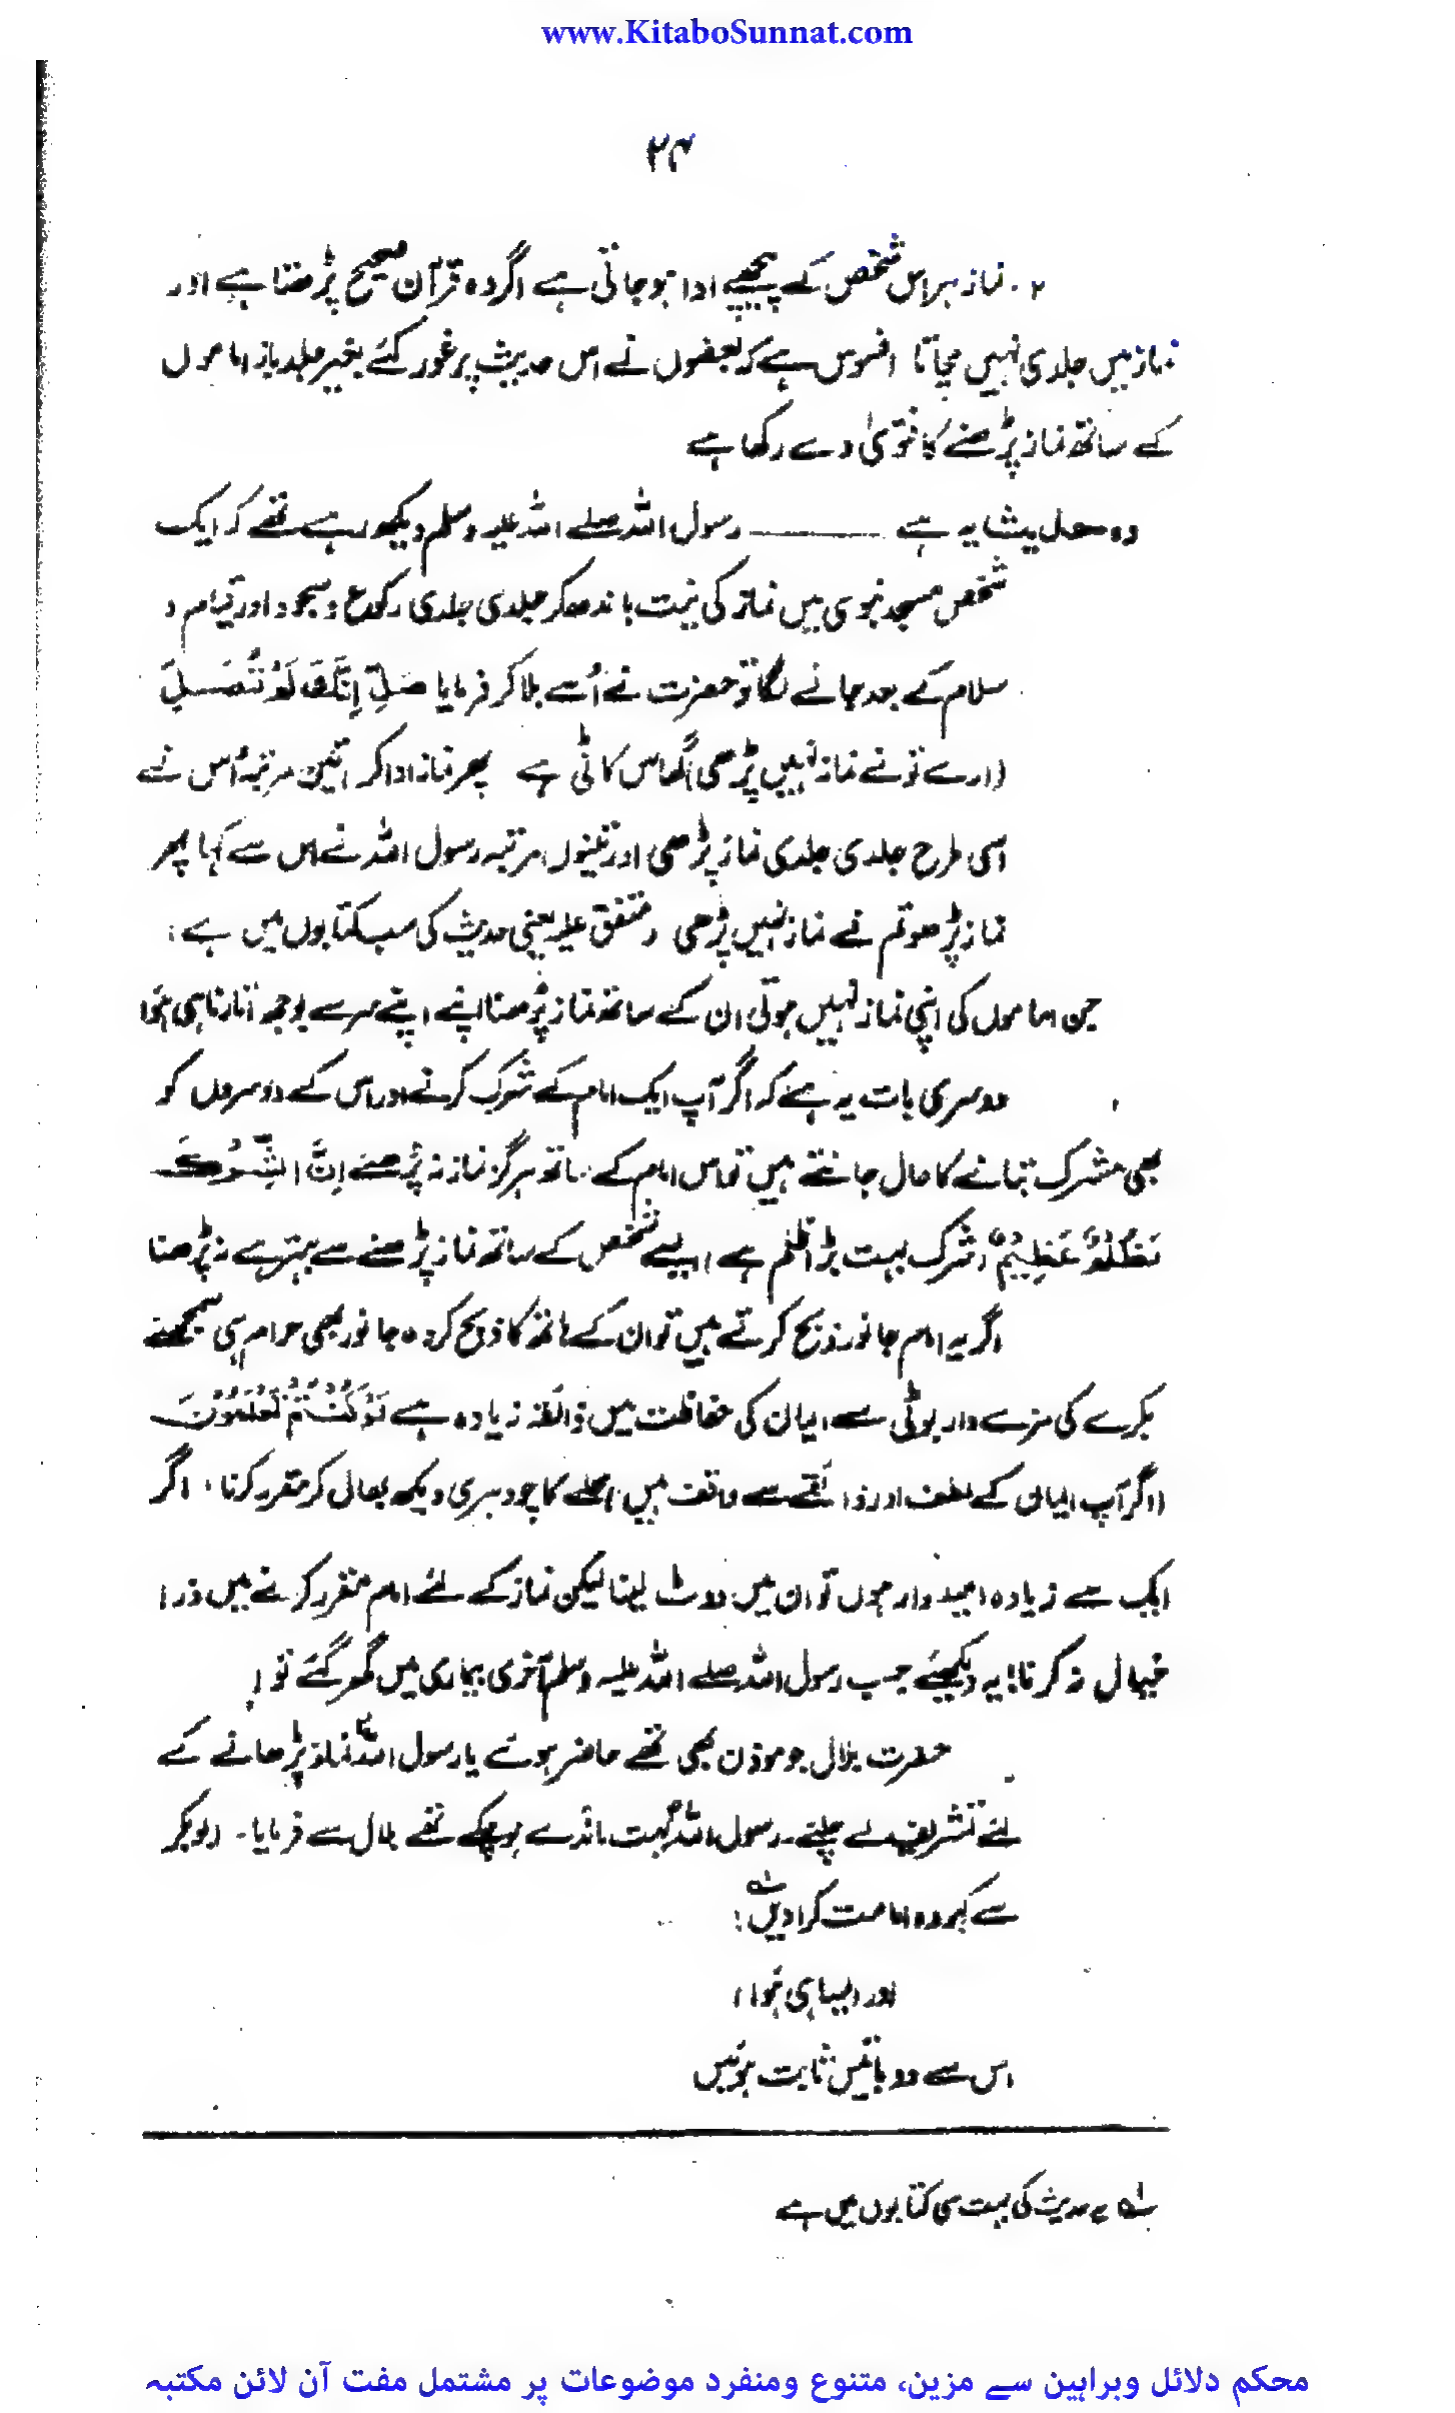 www.KitaboSunnat.com
۲۴
۲۔ نماز ہر اس شخص کے پیچھے ادا ہو جاتی ہے اگر وہ قرآن صحیح پڑھتا ہے اور
نماز میں جلدی نہیں مچاتا افسوس ہے کہ بعضوں نے اس حدیث پر غور کئے بغیر جلد باز اماموں
کے ساتھ نماز پڑھنے کا فتویٰ دے رکھا ہے
وہ حدیث یہ ہے ——— رسول اللہ صلے اللہ علیہ وسلم دیکھ رہے تھے کہ ایک
شخص مسجد نبوی میں نماز کی نیت باندھ کر جلدی جلدی رکوع و سجود اور قیام و
سلام کے بعد جانے لگا تو حضرت نے اُسے بلا کر فرمایا صَلِّ اِنَّكَ لَمْ تُصَلِّ
(ارے تو نے نماز نہیں پڑھی گھاس کاٹی ہے پھر نماز ادا کر) تین مرتبہ اُس نے
اسی طرح جلدی جلدی نماز پڑھی اور تینوں مرتبہ رسول اللہ نے اس سے کہا پھر
نماز پڑھو تم نے نماز نہیں پڑھی (متفق علیہ یعنی حدیث کی سب کتابوں میں ہے)
جن اماموں کی اپنی نماز نہیں ہوتی ان کے ساتھ نماز پڑھنا اپنے اپنے سر سے بوجھ اتارنا ہی ہُوا
دوسری بات یہ ہے کہ اگر آپ ایک امام کے شرک کرنے اور اس کے دوسروں کو
بھی مشرک بنانے کا حال جانتے ہیں تو اس امام کے ساتھ ہرگز نماز نہ پڑھئے اِنَّ الشِّرْكَ
لَظُلْمٌ عَظِيْمٌ (شرک بہت بڑا ظلم ہے) ایسے شخص کے ساتھ نماز پڑھنے سے بہتر ہے نہ پڑھنا
اگر یہ امام جانور ذبح کرتے ہیں تو ان کے ہاتھ کا ذبح کردہ جانور بھی حرام ہی سمجھئے
بکرے کی مزے دار بوٹی سے ایمان کی حفاظت میں ذائقہ زیادہ ہے لَوْ كُنْتُمْ تَعْلَمُوْنَ
(اگر آپ ایمان کے لطف اور ذائقے سے واقف ہیں) محلے کا چودہری دیکھ بھال کر مقرر کرنا، اگر
ایک سے زیادہ امیدوار ہوں تو ان میں ووٹ لینا لیکن نماز کے لئے امام مقرر کرنے میں ذرا
خیال نہ کرنا! یہ دیکھئے جب رسول اللہ صلے اللہ علیہ وسلم آخری بیماری میں گھر گئے تو!
حضرت بلال جو موذن بھی تھے حاضر ہوئے یا رسول اللہ نماز پڑھانے کے
لئے تشریف لے چلئے۔ رسول اللہ بہت ماندے ہو چکے تھے بلال سے فرمایا۔ ابوبکر
سے کہو وہ امامت کرا دیں لہ:
اور ایسا ہی ہُوا!
اس سے دو باتیں ثابت ہوئیں
لہ یہ حدیث کی بہت سی کتابوں میں ہے
محکم دلائل وبراہین سے مزین، متنوع ومنفرد موضوعات پر مشتمل مفت آن لائن مکتبہ